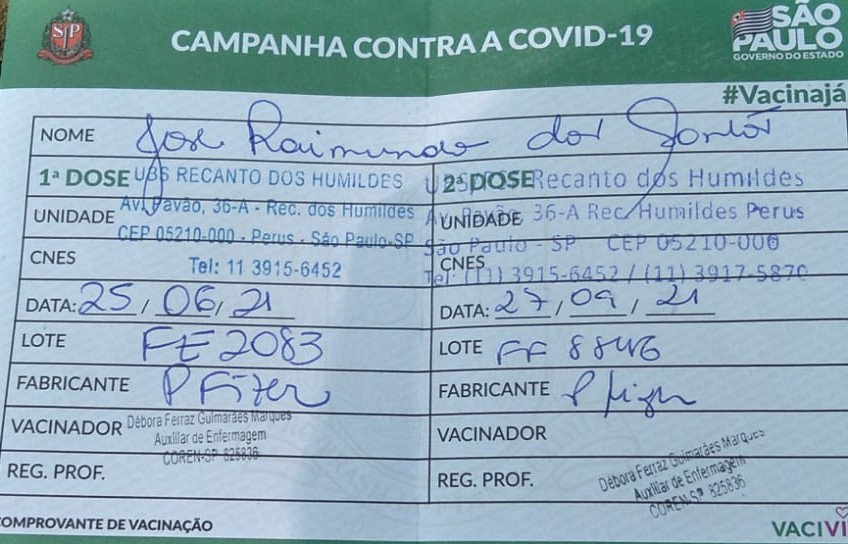 SP
CAMPANHA CONTRA A COVID-19
SÃO PAULO
GOVERNO DO ESTADO
#Vacinajá
NOME José Raimundo dos Santos
1ª DOSE UBS RECANTO DOS HUMILDES
UNIDADE Av. Pavão, 36-A - Rec. dos Humildes
CEP 05210-000 - Perus - São Paulo-SP
CNES Tel: 11 3915-6452
DATA: 25/06/21
LOTE FE2083
FABRICANTE PFizer
VACINADOR Débora Ferraz Guimarães Marques
Auxiliar de Enfermagem
COREN-SP 825836
REG. PROF.
2ª DOSE Recanto dos Humildes
UNIDADE 36-A Rec. Humildes Perus
São Paulo - SP CEP 05210-000
CNES
Tel: (11) 3915-6452 / (11) 3917-5870
DATA: 27/09/21
LOTE FF 8846
FABRICANTE Pfizer
VACINADOR
REG. PROF. Débora Ferraz Guimarães Marques
Auxiliar de Enfermagem
COREN-SP 825836
COMPROVANTE DE VACINAÇÃO
VACIVI